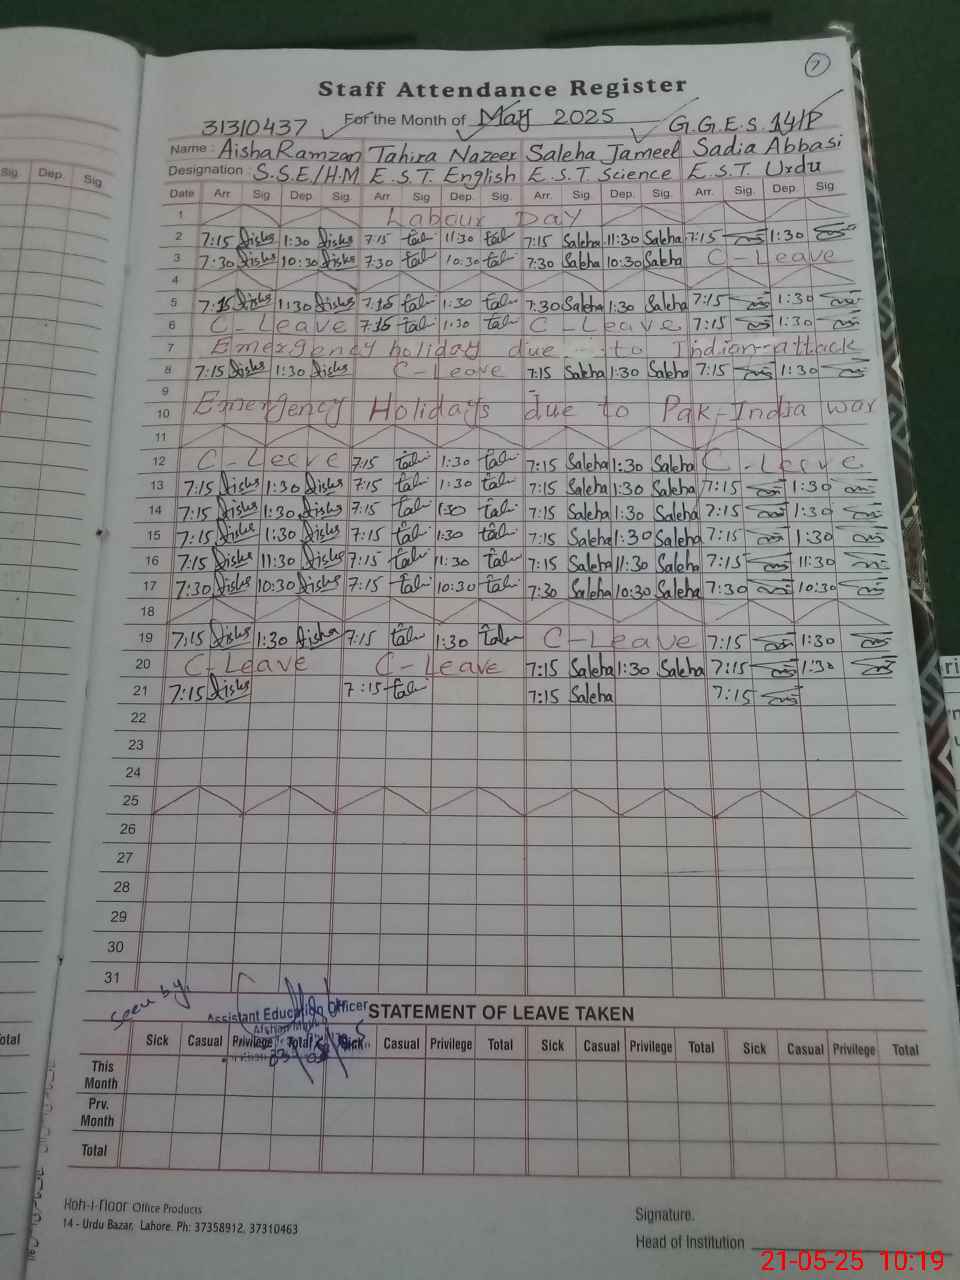 7
Staff Attendance Register
31310437 For the Month of May 2025 G.G.E.S. 141/P
Name : Aisha Ramzan Tahira Nazeer Saleha Jameel Sadia Abbasi
Designation : S.S.E/H.M E.S.T. English E.S.T Science E.S.T. Urdu
Sig. Dep. Sig
Date Arr. Sig Dep. Sig. Arr. Sig Dep. Sig. Arr. Sig. Dep. Sig. Arr. Sig. Dep. Sig
1 Labour Day
2 7:15 1:30 7:15 11:30 7:15 Saleha 11:30 Saleha 7:15 1:30
3 7:30 10:30 7:30 10:30 7:30 Saleha 10:30 Saleha C-Leave
4
5 7:15 1:30 7:15 1:30 7:30 Saleha 1:30 Saleha 7:15 1:30
6 C-Leave 7:15 1:30 C-Leave 7:15 1:30
7 Emergency holiday due to Indian-attack
8 7:15 1:30 C-Leave 7:15 Saleha 1:30 Saleha 7:15 1:30
9
10 Emergency Holidays due to Pak-India war
11
12 C-Leeve 7:15 1:30 7:15 Saleha 1:30 Saleha C-Leave
13 7:15 1:30 7:15 1:30 7:15 Saleha 1:30 Saleha 7:15 1:30
14 7:15 1:30 7:15 1:30 7:15 Saleha 1:30 Saleha 7:15 1:30
15 7:15 1:30 7:15 1:30 7:15 Saleha 1:30 Saleha 7:15 1:30
16 7:15 11:30 7:15 11:30 7:15 Saleha 11:30 Saleha 7:15 11:30
17 7:30 10:30 7:15 10:30 7:30 Saleha 10:30 Saleha 7:30 10:30
18
19 7:15 1:30 7:15 1:30 C-Leave 7:15 1:30
20 C-Leave C-Leave 7:15 Saleha 1:30 Saleha 7:15 1:30
21 7:15 7:15 7:15 Saleha 7:15
22
23
24
25
26
27
28
29
30
31
seen by,
Assistant Education Officer
STATEMENT OF LEAVE TAKEN
Sick Casual Privilege Total Sick Casual Privilege Total Sick Casual Privilege Total Sick Casual Privilege Total
This Month
Prv. Month
Total
Koh-i-noor Office Products
14 - Urdu Bazar, Lahore. Ph: 37358912, 37310463
Signature.
Head of Institution
21-05-25 10:19